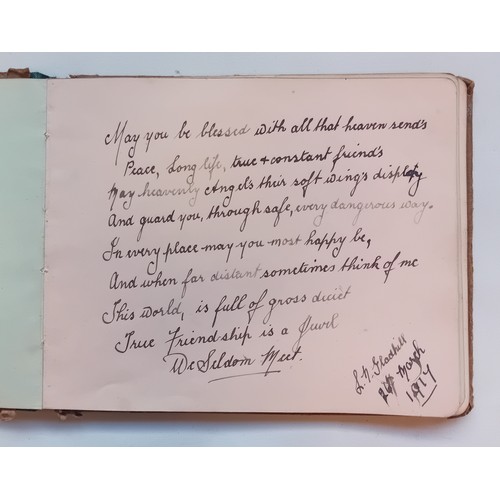 May you be blessed with all that heaven send's
Peace, Long life, true & constant friend's
May heavenly Angel's thir soft wing's display
And guard you, through safe, every dangerous way.
In every place may you most happy be,
And when far distant sometimes think of me
This world, is full of gross
True Friendship is a Juwil
We Seldom Meet.
March
1917